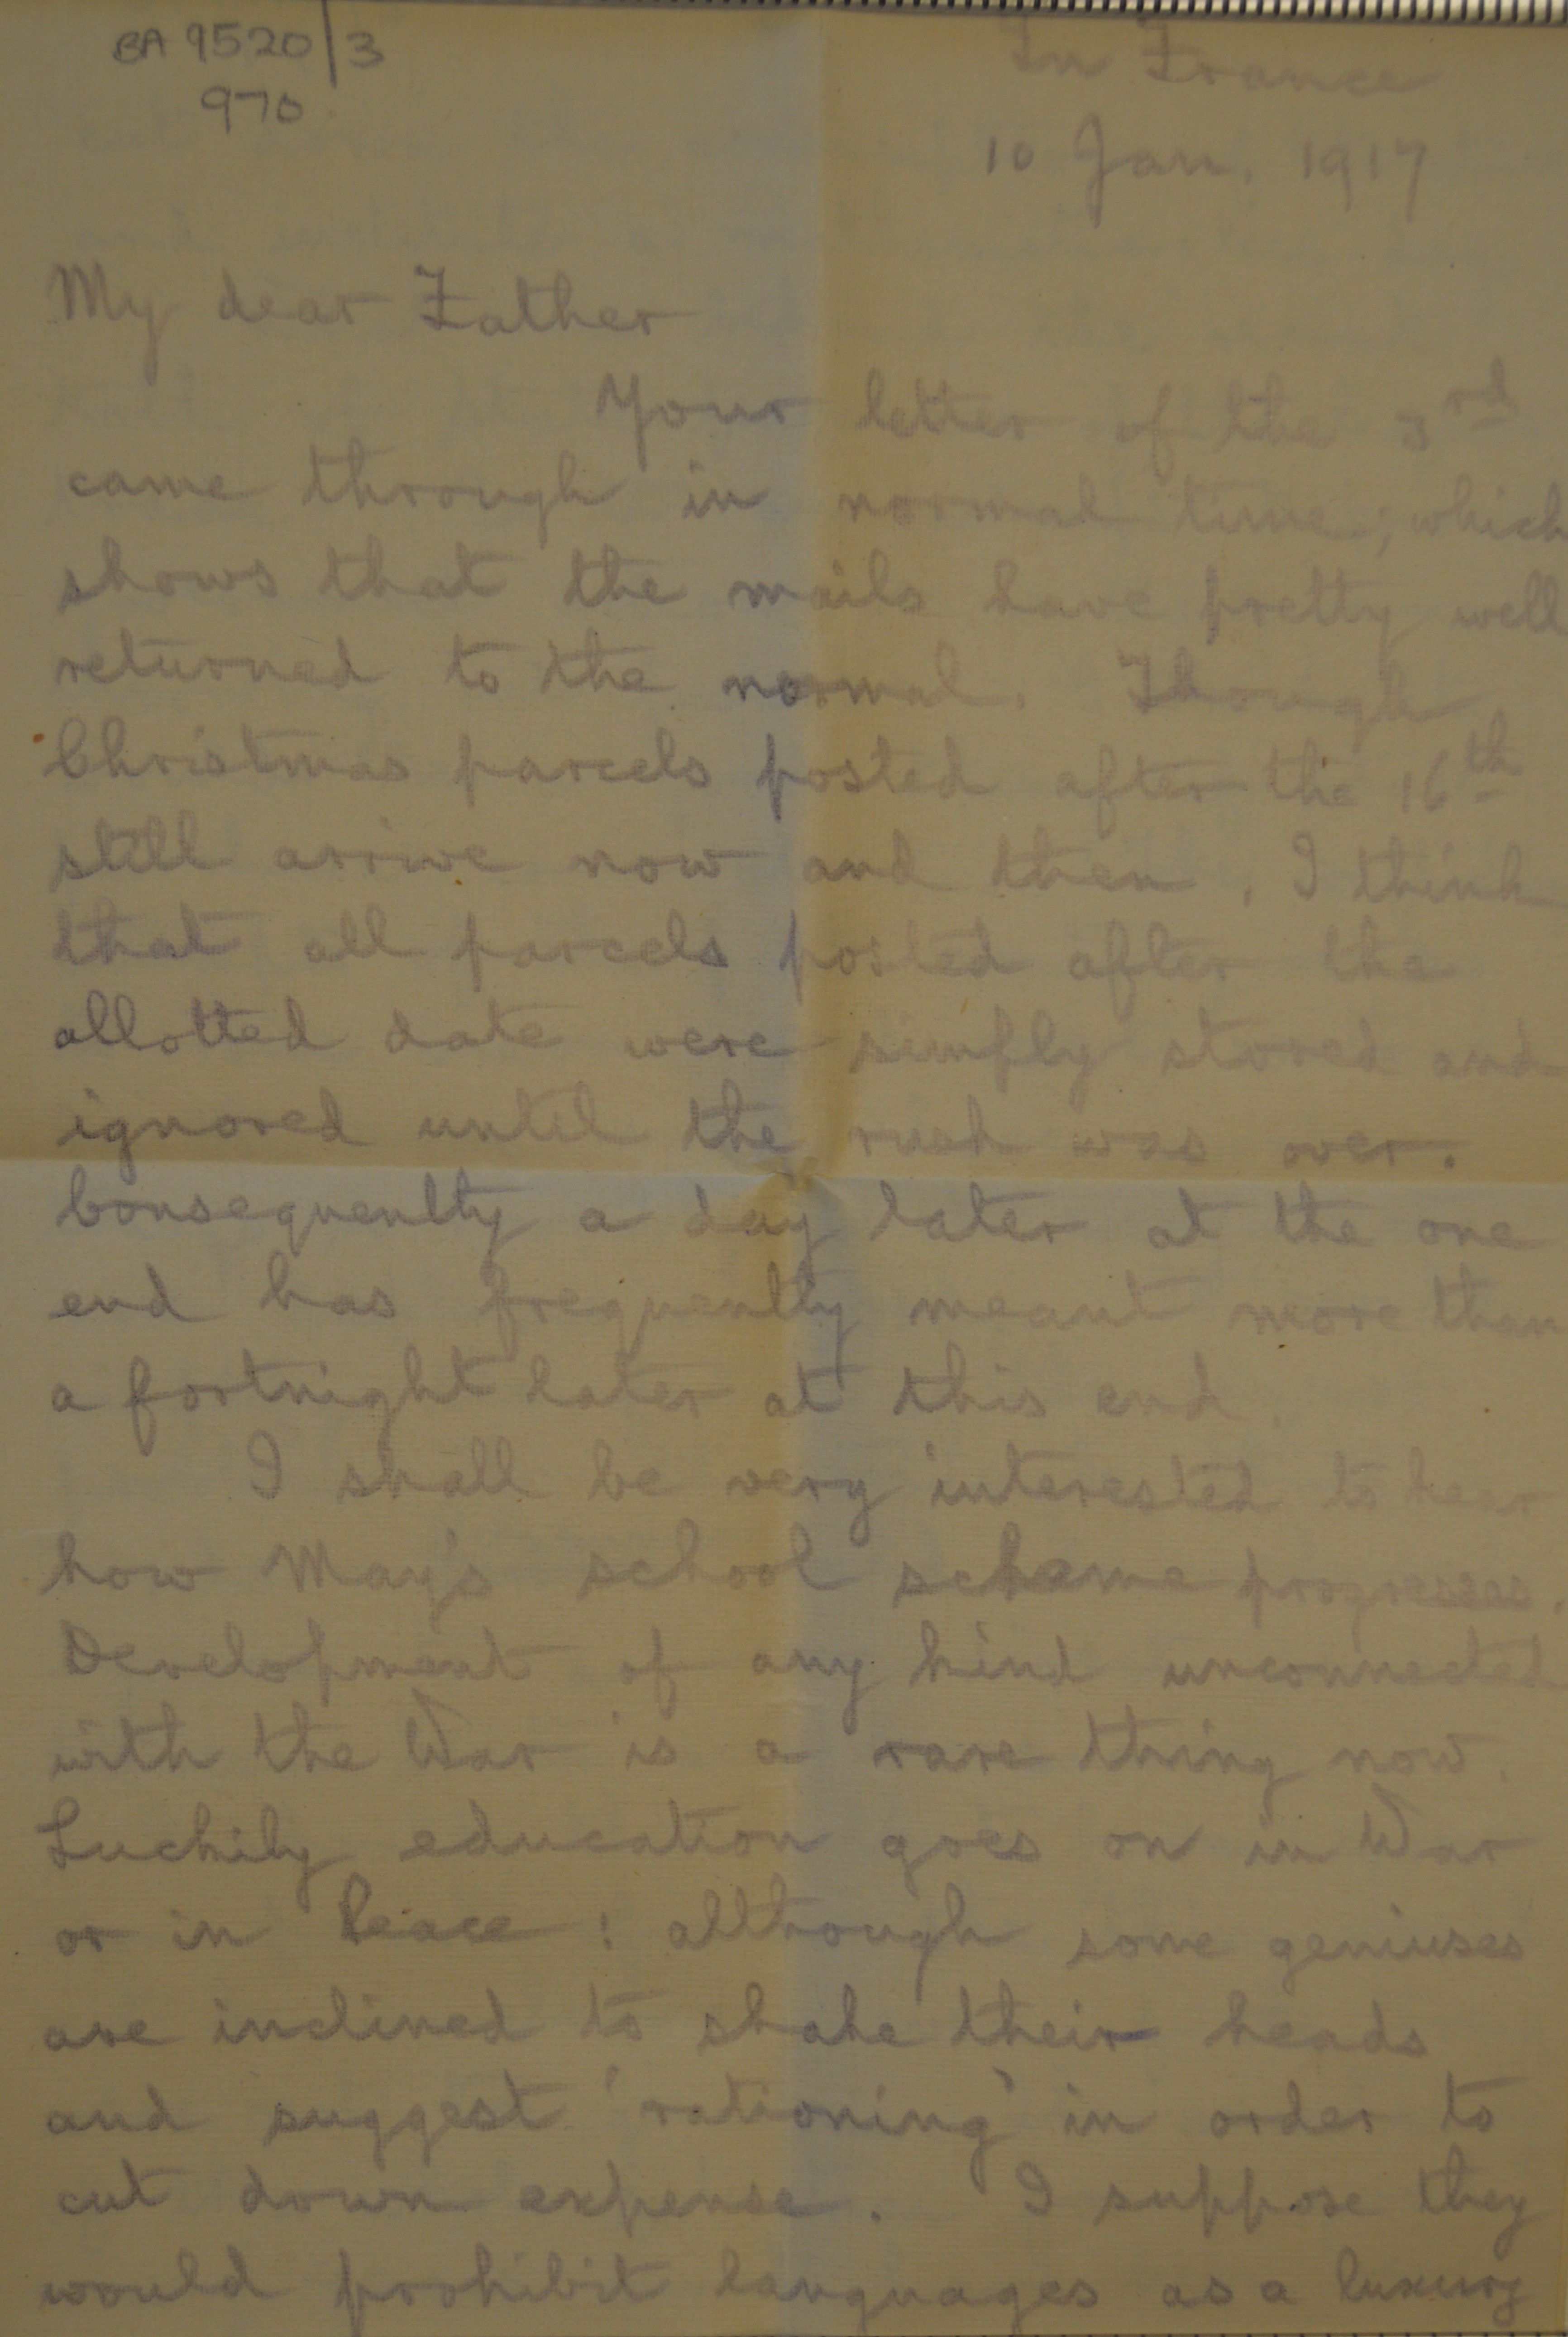 BA 9520/3
970
In France
10 Jan. 1917
My dear Father
Your letter of the 3rd
came through in normal time; which
shows that the mails have pretty well
returned to the normal. Though
Christmas parcels posted after the 16th
still arrive now and then, I think
that all parcels posted after the
allotted date were simply stored and
ignored until the rush was over.
Consequently a day later at the one
end has frequently meant more than
a fortnight later at this end.
I shall be very interested to hear
how May's school scheme progresses.
Development of any kind unconnected
with the War is a rare thing now.
Luckily education goes on in War
or in Peace: although some geniuses
are inclined to shake their heads
and suggest 'rationing' in order to
cut down expense. I suppose they
would prohibit languages as a luxury